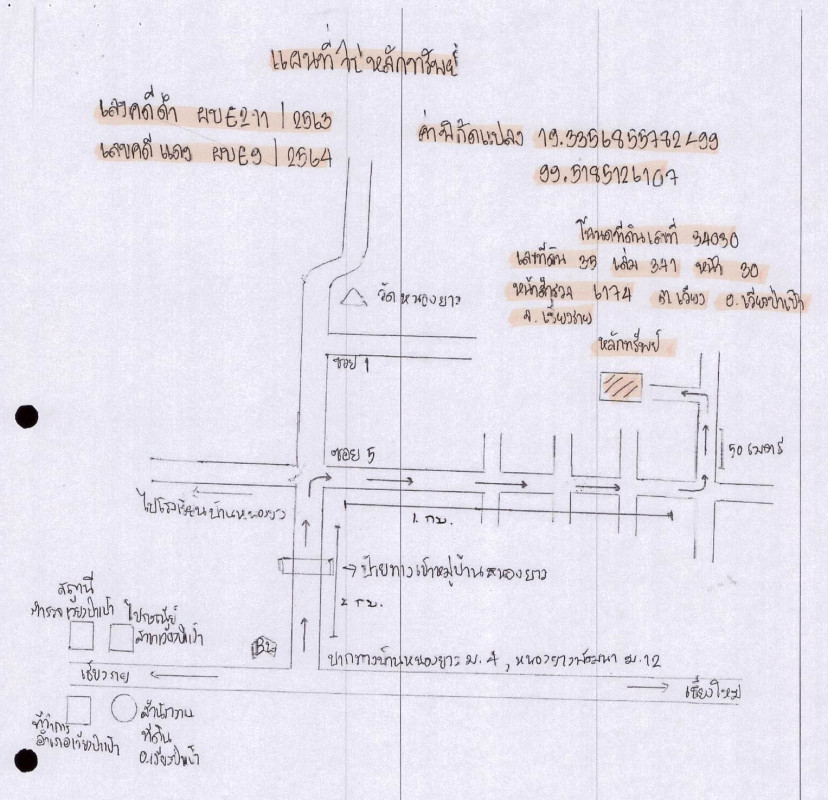 แผนที่ไปหลักทรัพย์
เลขคดีดำ ผบE211 / 2563
เลขคดีแดง ผบE9 / 2564
ค่าพิกัดแปลง 19.3356855782499
99.5185126107
โฉนดที่ดินเลขที่ 34030
เลขที่ดิน 35 เล่ม 341 หน้า 30
หน้าสำรวจ 6174 ต.เวียง อ.เวียงป่าเป้า
จ.เชียงราย
หลักทรัพย์
วัดหนองยาว
ซอย 1
ซอย 5
50 เมตร
ไปโรงเรียนบ้านหนองยาว
1 กม.
ป้ายทางเข้าหมู่บ้านหนองยาว
2 กม.
สถานี
ตำรวจเวียงป่าเป้า
ไปรษณีย์
สาขาเวียงป่าเป้า
ปากทางบ้านหนองยาว ม.4 , หนองยาวพัฒนา ม.12
เชียงราย
เชียงใหม่
ที่ว่าการ
อำเภอเวียงป่าเป้า
สำนักงาน
ที่ดิน
อ.เวียงป่าเป้า